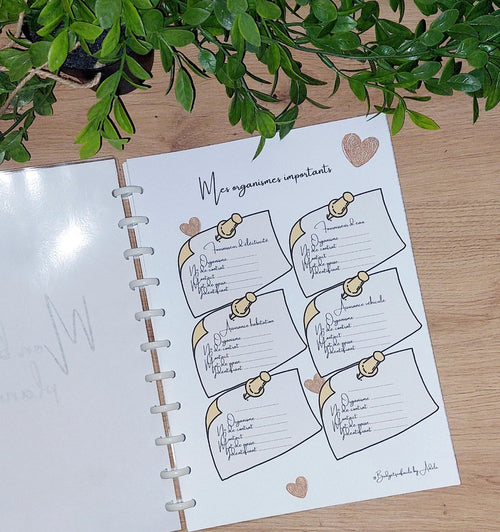 Mes organismes importants
Fournisseur d'électricité
Organisme
N° de contrat
Contact
Mot de passe
Identifiant
Fournisseur d'eau
Organisme
N° de contrat
Contact
Mot de passe
Identifiant
Assurance habitation
Organisme
N° de contrat
Contact
Mot de passe
Identifiant
Assurance véhicule
Organisme
N° de contrat
Contact
Mot de passe
Identifiant
Organisme
N° de contrat
Contact
Mot de passe
Identifiant
Organisme
N° de contrat
Contact
Mot de passe
Identifiant
by